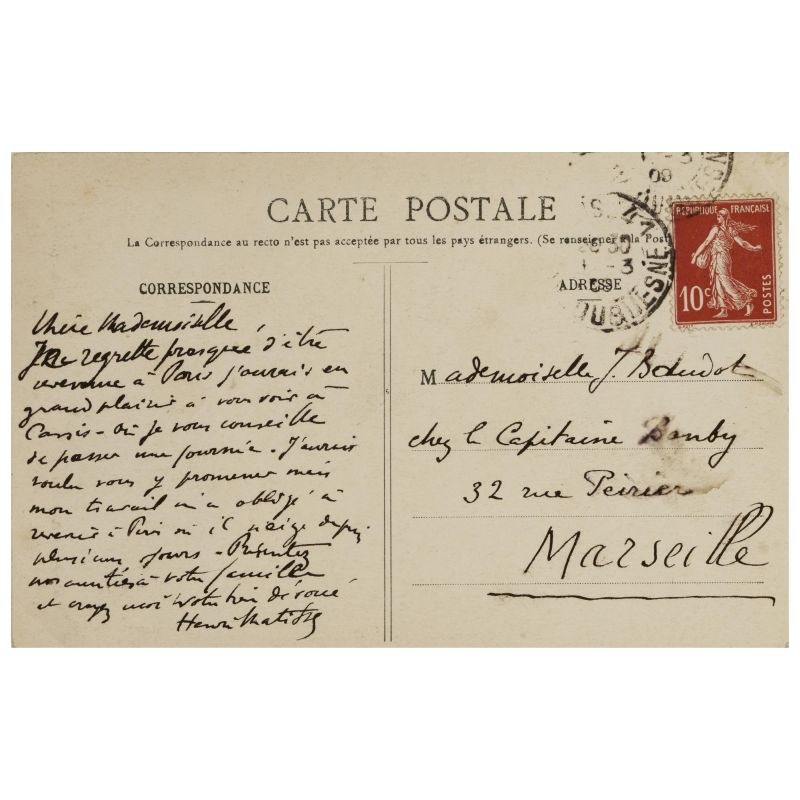 CARTE POSTALE
La Correspondance au recto n'est pas acceptée par tous les pays étrangers. (Se renseigner à la Post
CORRESPONDANCE
ADRESSE
Chère Mademoiselle,
Je regrette presque d'être
revenu à Paris j'aurais eu
grand plaisir à vous voir à
Cassis - où je vous conseille
de passer une journée. J'aurais
voulu vous y promener mais
mon travail m'a obligé à
revenir à Paris où il neige depuis
plusieurs jours - Présentez
mes amitiés à votre famille
et croyez moi votre bien dévoué
Henri Matisse
Mademoiselle J.
chez le Capitaine
32 rue Peirier
Marseille
REPUBLIQUE FRANÇAISE
10c
POSTES
41
30
-3
09
-3
09